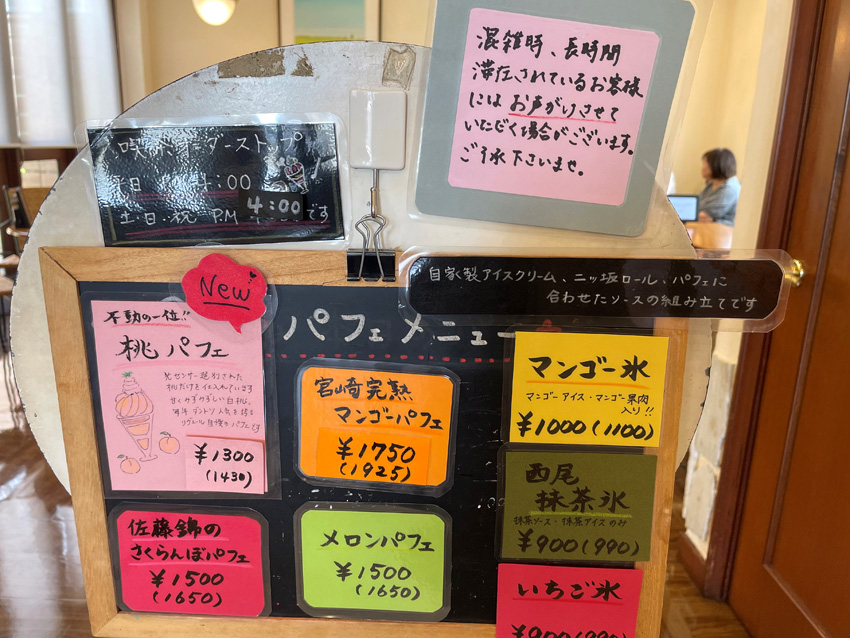 混雑時、長時間
滞在されているお客様
には お声がけさせて
いただく場合がございます。
ご了承下さいませ。
喫茶オーダーストップ
平日 4:00
土・日・祝 PM 4:00です
自家製アイスクリーム、ニッ坂ロール、パフェに
合わせたソースの組み立てです
New
パフェメニュー
不動の一位!!
桃パフェ
光センサー選別された
桃だけを仕入れています
甘くみずみずしい白桃。
¥1300
(1430)
宮崎完熟
マンゴーパフェ
¥1750
(1925)
マンゴー氷
マンゴーアイス・マンゴー果肉
入り!!
¥1000(1100)
西尾
抹茶氷
抹茶ソース・抹茶アイスのみ
¥900(990)
佐藤錦の
さくらんぼパフェ
¥1500
(1650)
メロンパフェ
¥1500
(1650)
いちご氷
¥900(990)